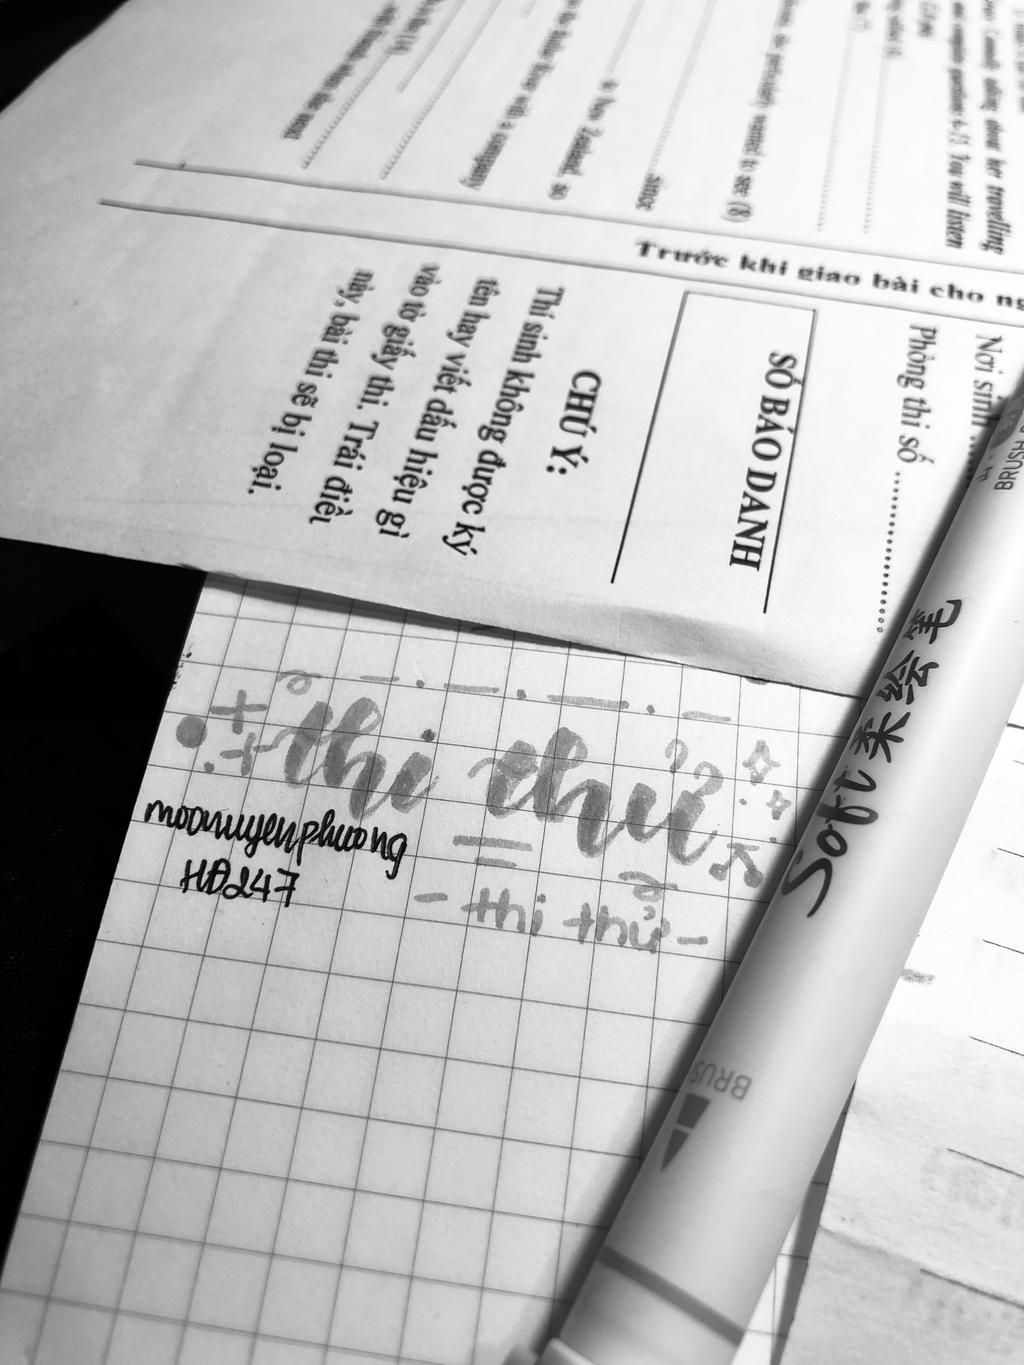 Trước khi giao bài cho
Nơi sinh
Phòng thi số
SỐ BÁO DANH
CHÚ Ý:
Thí sinh không được ký
tên hay viết dấu hiệu gì
vào tờ giấy thi. Trái điều
này, bài thi sẽ bị loại.
talking about her travelling
and complete questions 6-15. You will listen
particularly wanted to see (8)
since
to New Zealand, so
with a company
thi thử
moonuyenphuong
HĐ247
- thi thử -
Soft 柔绘笔
BRUSH
BRUS